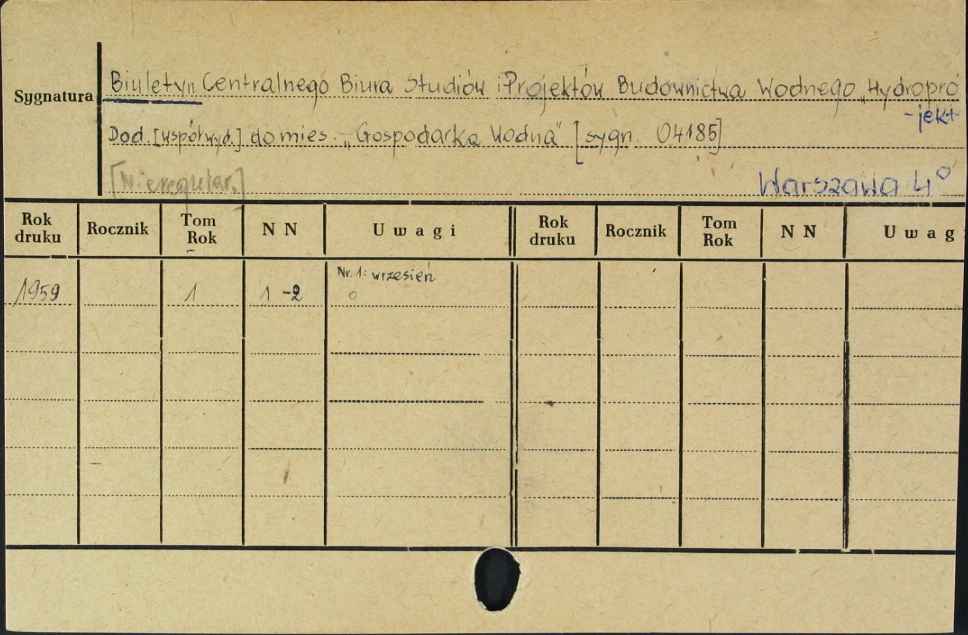 Sygnatura
Biuletyn Centralnego Biura Studiów i Projektów Budownictwa Wodnego „Hydropro
-jekt
Dod. [współwyd.] do mies. „Gospodarka Wodna" [sygn. 04185]
[Nieregular.]
Warszawa 4°
Rok druku Rocznik Tom Rok N N Uwagi Rok druku Rocznik Tom Rok N N Uwag
Nr. 1: wrzesień
1959 1 1 -2